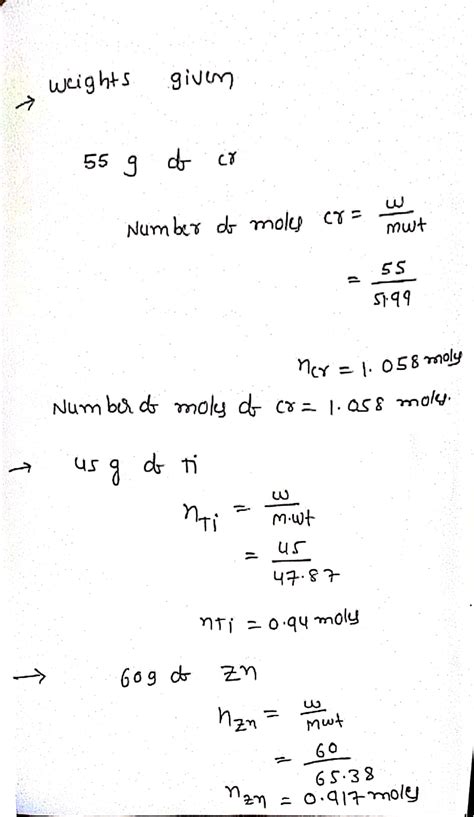 → weights given
55 g of cr
Number of moles cr = w
mwt
= 55
51.99
ncr = 1.058 moles
Number of moles of cr = 1.058 moles.
→ 45 g of Ti
nTi = w
M.wt
= 45
47.87
nTi = 0.94 moles
→ 60g of Zn
nZn = w
Mwt
= 60
65.38
nzn = 0.917 moles